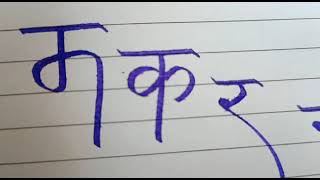 मकर